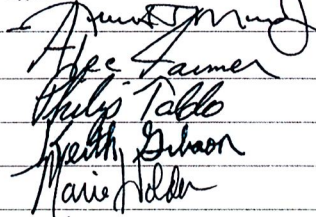 Alec Farmer
Philip Taldo
Keith Gibson
Marie Holder